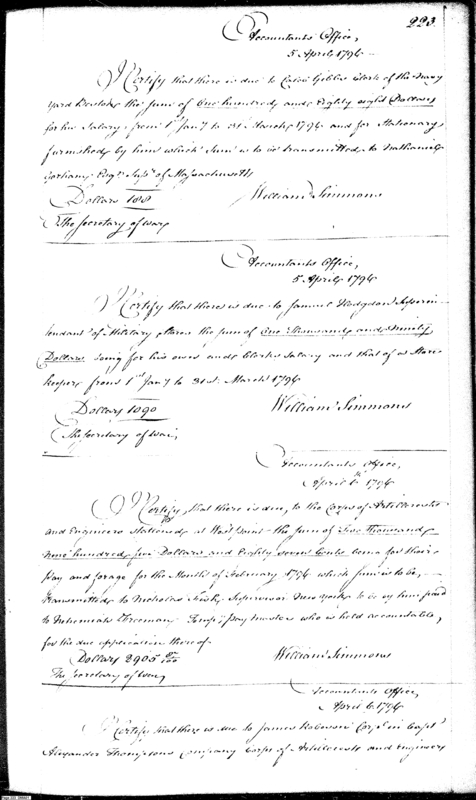 223
Accountants Office,
5 April 1796
I Certify that there is due to Caleb Gibbs Clerk of the Navy
Yard Boston the sum of One hundred and Eighty eight Dollars
for his Salary from 1st Jany to 31st March 1796 and for Stationary
furnished by him which sum is to be transmitted to Nathaniel
Gorham Esqr. Supr. of Massachusetts
Dollars 188
William Simmons
The Secretary of War
Accountants Office,
5 April 1796
I Certify that there is due to Samuel Hodgdon Superin-
tendant of Military Stores the sum of One Thousand and Ninety
Dollars being for his own and Clerks Salary and that of a Store
keeper from 1st Jany to 31st March 1796
Dollars 1090
William Simmons
The Secretary of War,
Accountants Office,
April 6th 1796
I Certify, that there is due, to the Corps of Artillerists
and Engineers Stationed at West Point the sum of Two Thousand,
nine hundred five Dollars and Eighty seven Cents being for their
Pay and forage for the Month of February 1796 which sum is to be,
transmitted to Nicholas Fish, Supervisor New York to be by him paid
to Nehemiah Freeman, Pay Master who is held accountable,
for the due application thereof
Dollars 2905 87/100
William Simmons
The Secretary of War,
Accountants Office,
April 6. 1796
I Certify that there is due to James Corpl. in Capt
Alexander Thompsons Company Corps of Artillerists and Engineers